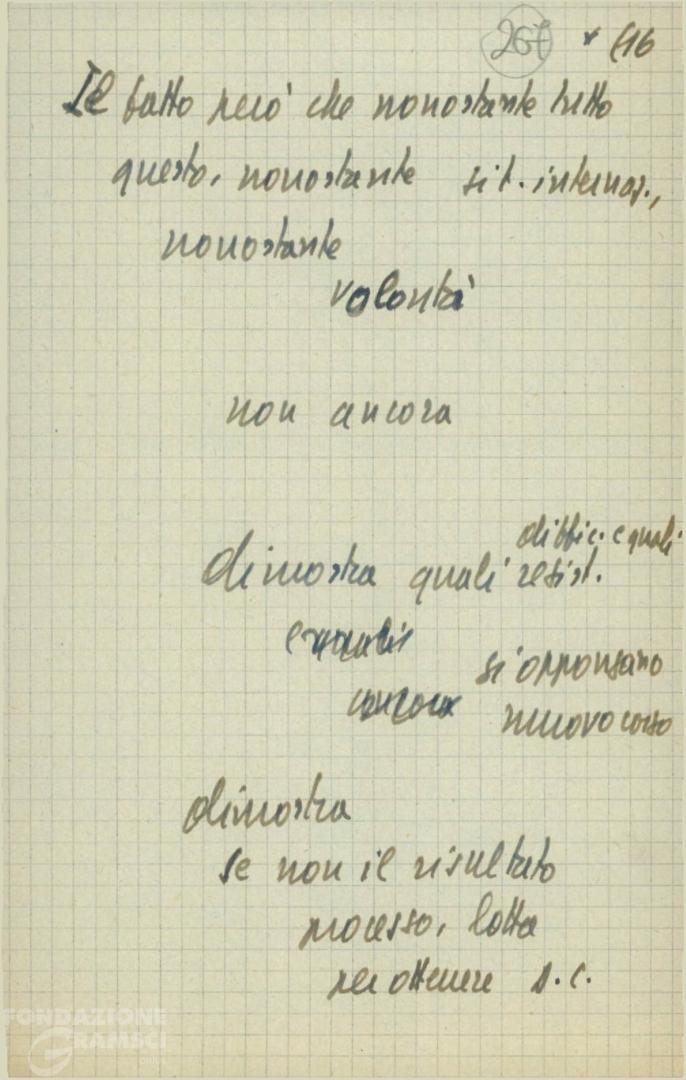 267 * 616
Il fatto però che nonostante tutto
questo, nonostante sit. internaz.,
nonostante
volontà
non ancora
diffic. e quali
dimostra quali resist.
si oppongano
nuovo corso
dimostra
se non il risultato
processo, lotta
per ottenere
FONDAZIONE
GRAMSCI